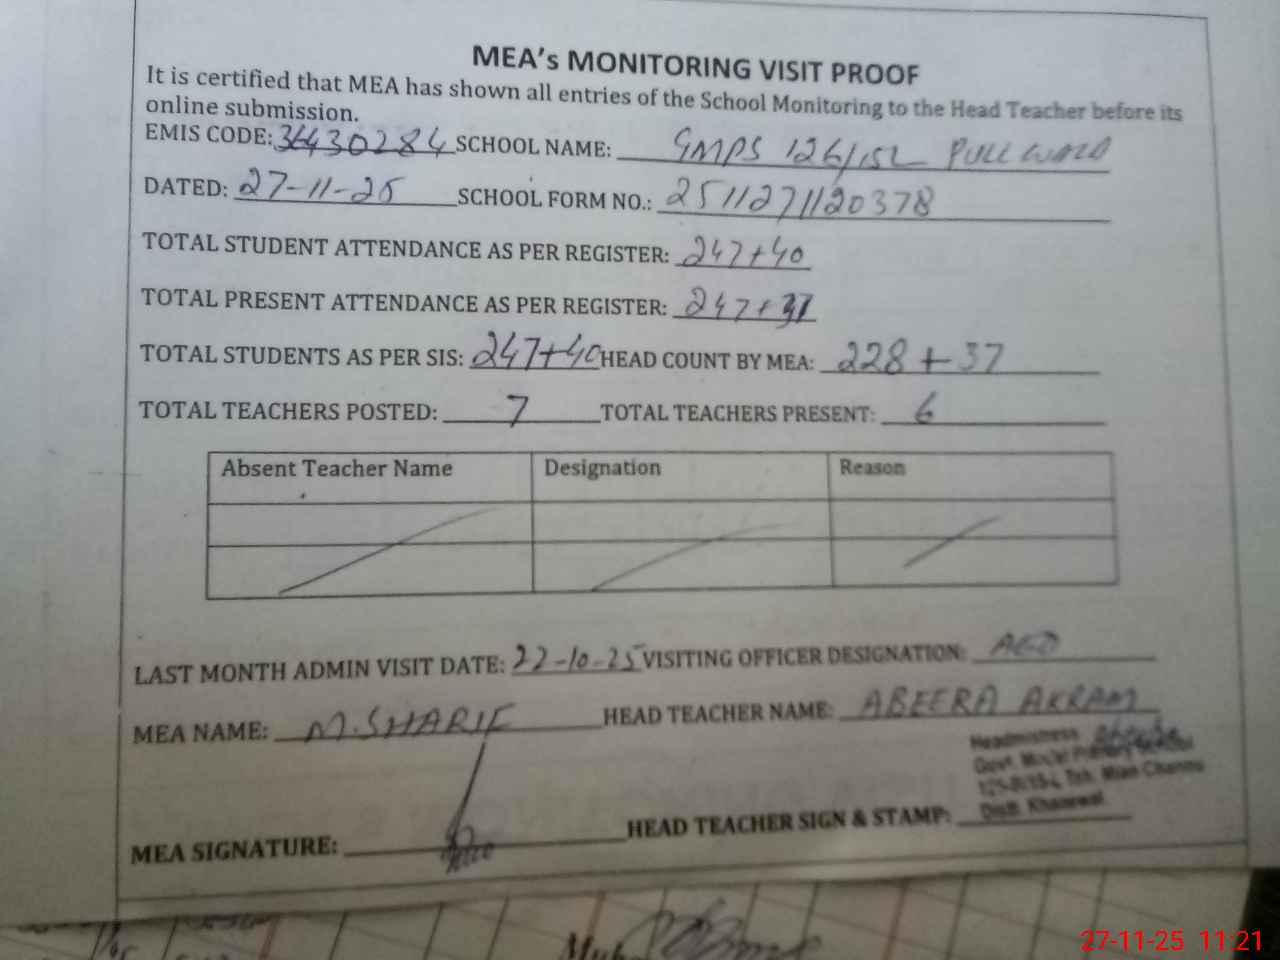 MEA's MONITORING VISIT PROOF
It is certified that MEA has shown all entries of the School Monitoring to the Head Teacher before its
online submission.
EMIS CODE: 36430284 SCHOOL NAME: GMPS 126/15L
DATED: 27-11-25 SCHOOL FORM NO.: 2511271120378
TOTAL STUDENT ATTENDANCE AS PER REGISTER: 247+40
TOTAL PRESENT ATTENDANCE AS PER REGISTER: 247+37
TOTAL STUDENTS AS PER SIS: 247+40 HEAD COUNT BY MEA: 228+37
TOTAL TEACHERS POSTED: 7 TOTAL TEACHERS PRESENT: 6
Absent Teacher Name Designation Reason
LAST MONTH ADMIN VISIT DATE: 22-10-25 VISITING OFFICER DESIGNATION: AEO
MEA NAME: M.SHARIF HEAD TEACHER NAME: ABEERA AKRAM
Headmistress
Govt. Model Primary School
Teh. Mian Channu
Distt. Khanewal
MEA SIGNATURE: HEAD TEACHER SIGN & STAMP:
27-11-25 11:21